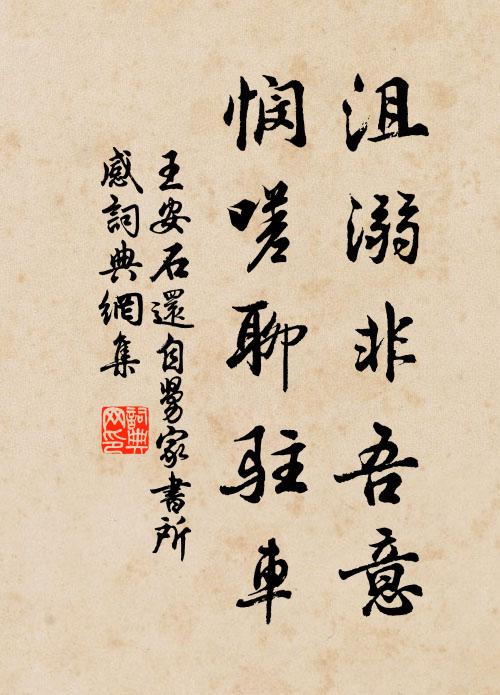 沮溺非吾意
憫嗟聊駐車
王安石還自舅家書所
感詞典網集
詞典網印